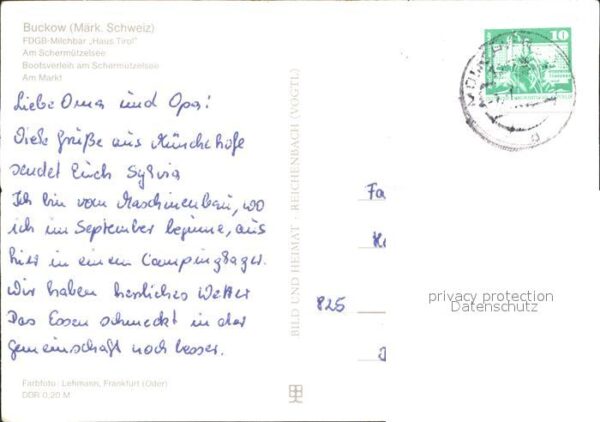 Buckow (Märk. Schweiz)
FDGB-Milchbar „Haus Tirol"
Am Schermützelsee
Bootsverleih am Schermützelsee
Am Markt
Liebe Oma und Opa!
Viele Grüße aus Münchehofe
sendet Euch Sylvia
Ich bin vom Maschinenbau, wo
ich im September beginne, aus
hier in einem Campinglager.
Wir haben herrliches Wetter
Das Essen schmeckt in der
Gemeinschaft noch besser.
Farbfoto: Lehmann, Frankfurt (Oder)
DDR 0,20 M
BILD UND HEIMAT · REICHENBACH (VOGTL)
10
Fa
825
privacy protection
Datenschutz